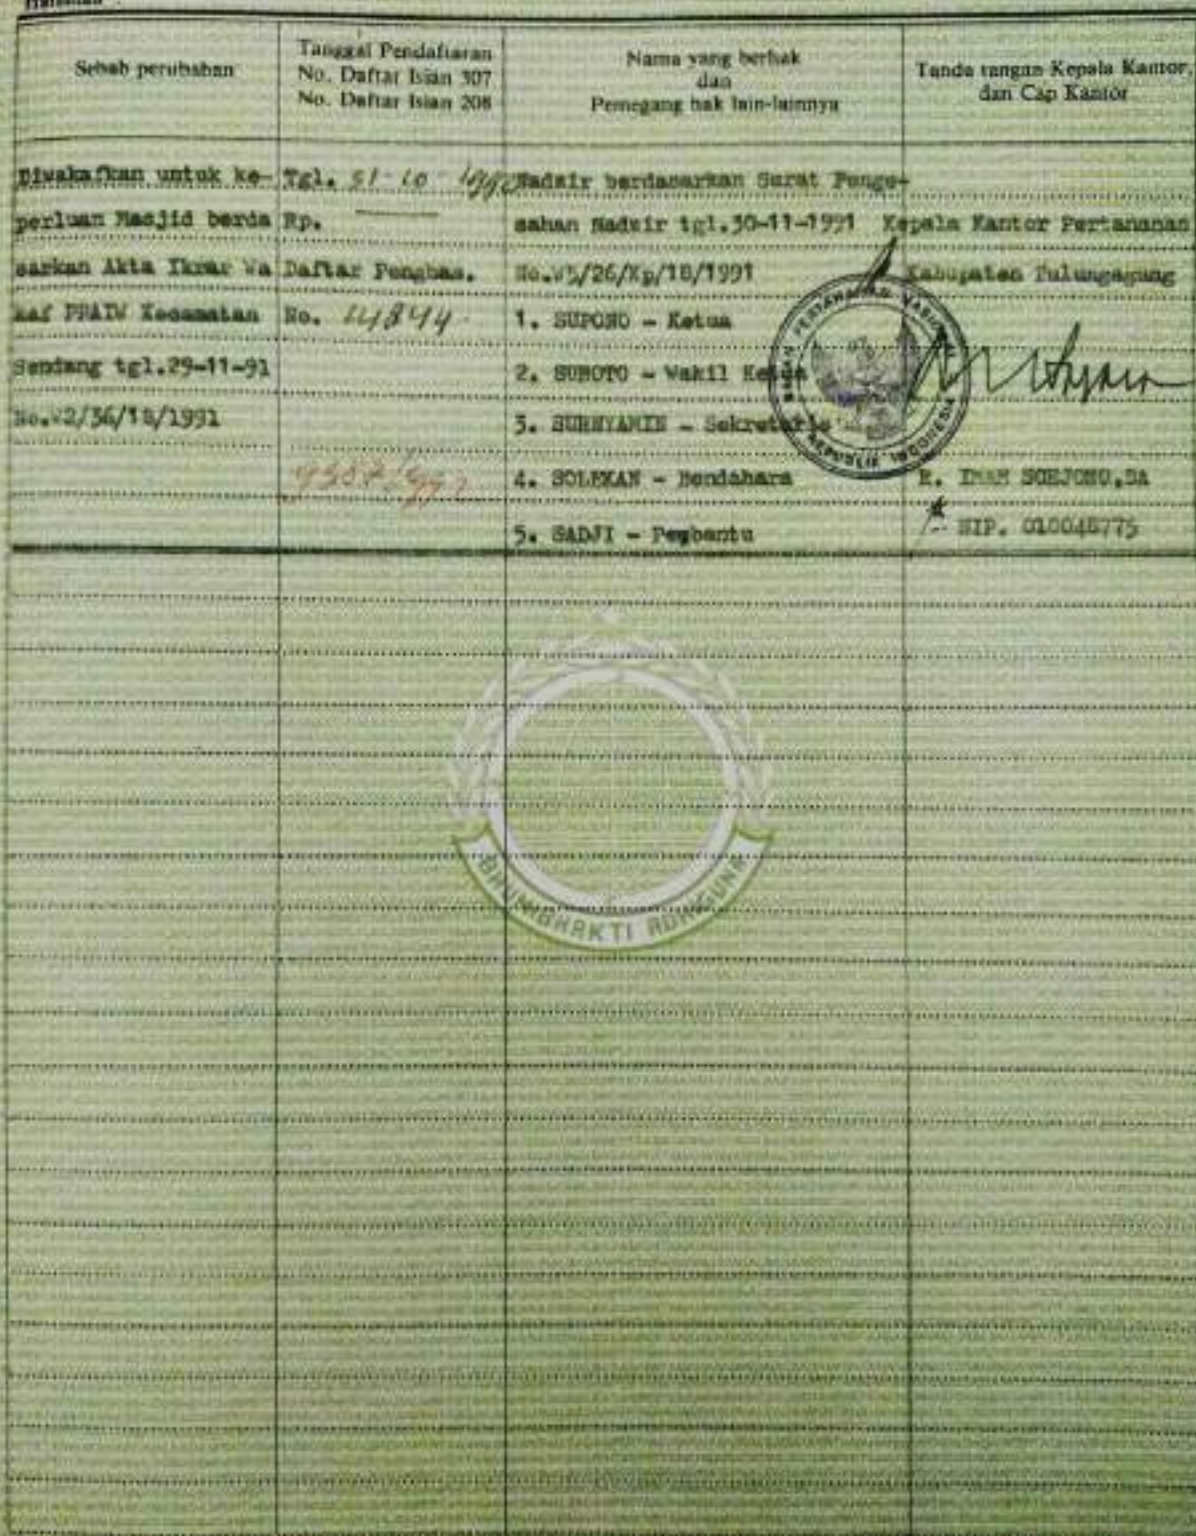 Halaman
Sebab perubahan
Tanggal Pendaftaran
No. Daftar Isian 307
No. Daftar Isian 208
Nama yang berhak
dan
Pemegang hak lain-lainnya
Tanda tangan Kepala Kantor,
dan Cap Kantor
Diwakafkan untuk ke-
perluan Masjid berda
sarkan Akta Ikrar Wa
kaf PPAIW Kecamatan
Sendang tgl.29-11-91
No.W2/36/18/1991
Tgl. 31 10 1992
Rp.
Daftar Penghas.
No. 14844
Nadzir berdasarkan Surat Penge-
sahan Nadzir tgl.30-11-1991
No.W5/26/Kp/18/1991
1. SUPONO - Ketua
2. SUROTO - Wakil Ketua
3. SURNYAMIN - Sekretaris
4. SOLEKAN - Bendahara
5. SADJI - Pembantu
Kepala Kantor Pertanahan
Kabupaten Tulungagung
BADAN PERTANAHAN NASIONAL
REPUBLIK INDONESIA
R. IMAM SOEJONO,BA
NIP. 010048775
BHUMIBHAKTI ADHIGUNA